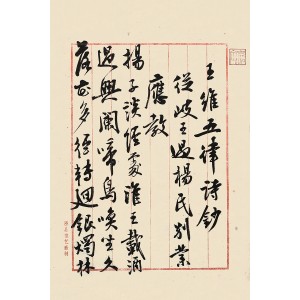 王維五律詩鈔
從岐王過楊氏別業
應教
楊子談經處淮王載酒
過興闌啼鳥喚坐久
落花多徑轉迴銀燭林